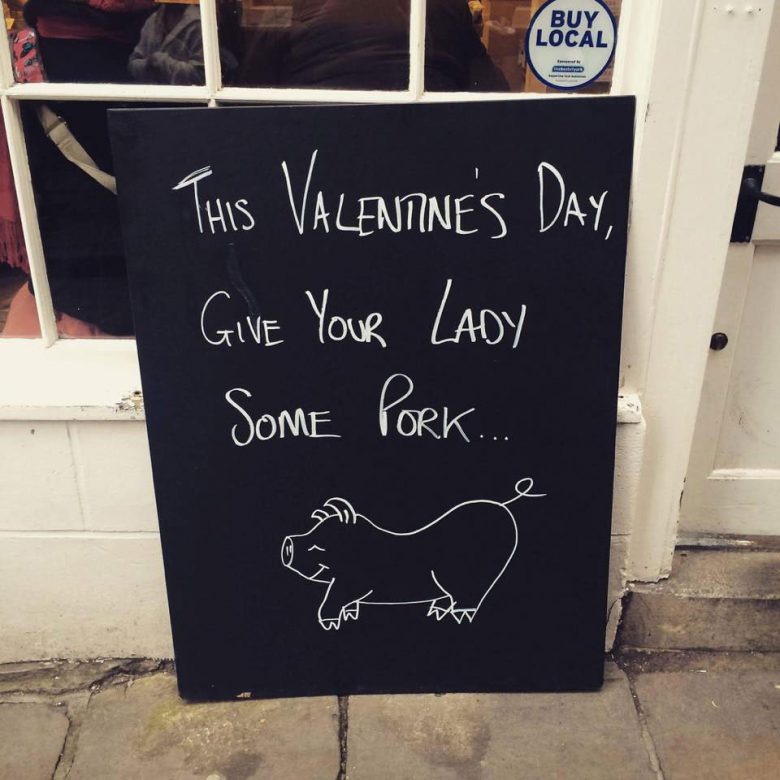 BUY
LOCAL
THIS VALENTINE'S DAY,
GIVE YOUR LADY
SOME PORK...